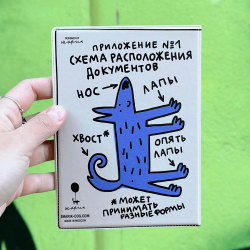 ПРИЛОЖЕНИЕ №1
СХЕМА РАСПОЛОЖЕНИЯ
ДОКУМЕНТОВ
НОС
ЛАПЫ
ХВОСТ*
ОПЯТЬ
ЛАПЫ
*МОЖЕТ
ПРИНИМАТЬ
РАЗНЫЕ ФОРМЫ